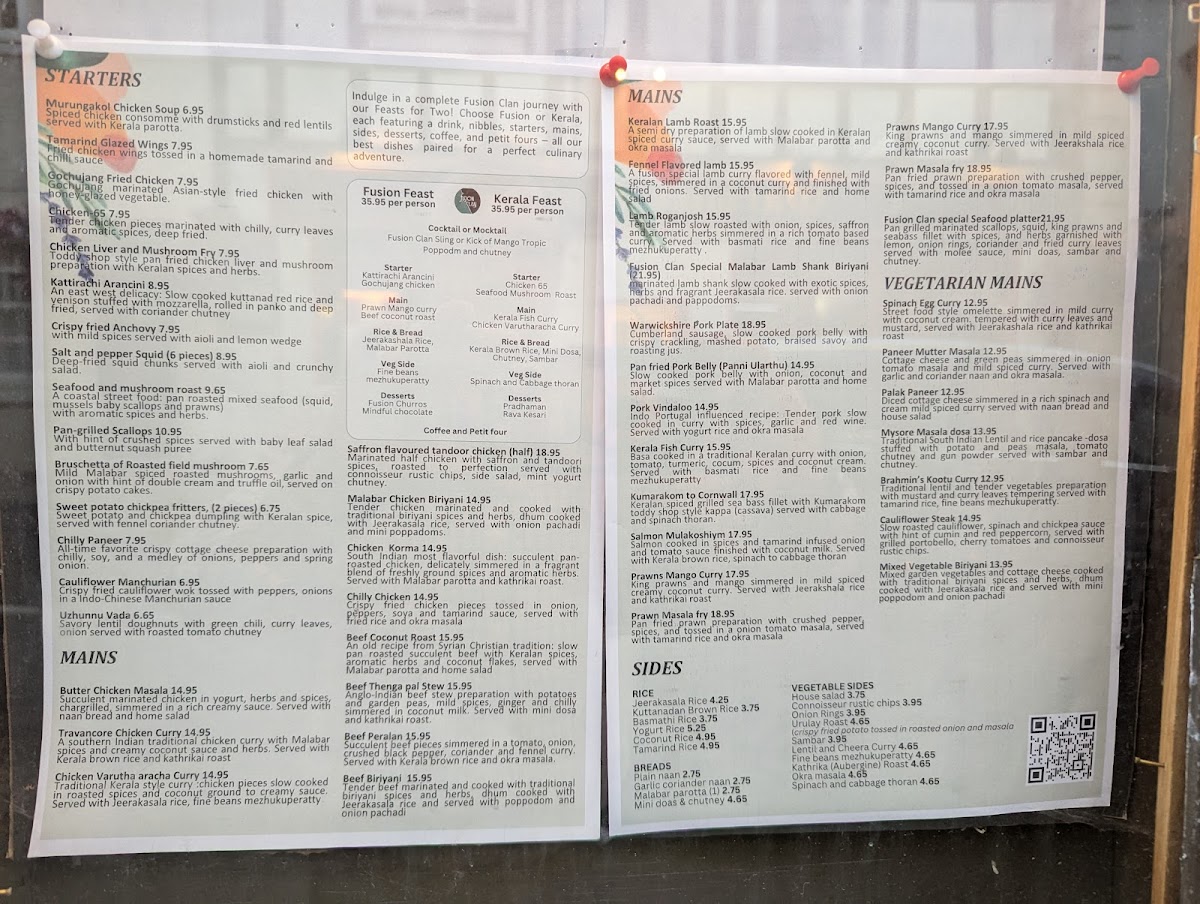 STARTERS
Murungakol Chicken Soup 6.95
Spiced chicken consomme with drumsticks and red lentils
served with Kerala parotta.
Tamarind Glazed Wings 7.95
Fried chicken wings tossed in a homemade tamarind and
chilli sauce
Gochujang Fried Chicken 7.95
Gochujang marinated Asian-style fried chicken with
honey-glazed vegetable.
Chicken-65 7.95
Tender chicken pieces marinated with chilly, curry leaves
and aromatic spices, deep fried.
Chicken Liver and Mushroom Fry 7.95
Toddy shop style pan fried chicken liver and mushroom
preparation with Keralan spices and herbs.
Kattirachi Arancini 8.95
An east west delicacy: Slow cooked kuttanad red rice and
venison stuffed with mozzarella, rolled in panko and deep
fried, served with coriander chutney
Crispy fried Anchovy 7.95
with mild spices served with aioli and lemon wedge
Salt and pepper Squid (6 pieces) 8.95
Deep-fried squid chunks served with aioli and crunchy
salad.
Seafood and mushroom roast 9.65
A coastal street food: pan roasted mixed seafood (squid,
mussels baby scallops and prawns)
with aromatic spices and herbs.
Pan-grilled Scallops 10.95
With hint of crushed spices served with baby leaf salad
and butternut squash puree
Bruschetta of Roasted field mushroom 7.65
Mild Malabar spiced roasted mushrooms, garlic and
onion with hint of double cream and truffle oil, served on
crispy potato cakes.
Sweet potato chickpea fritters, (2 pieces) 6.75
Sweet potato and chickpea dumpling with Keralan spice,
served with fennel coriander chutney.
Chilly Paneer 7.95
All-time favorite crispy cottage cheese preparation with
chilly, soy, and a medley of onions, peppers and spring
onion.
Cauliflower Manchurian 6.95
Crispy fried cauliflower wok tossed with peppers, onions
in a Indo-Chinese Manchurian sauce
Uzhunnu Vada 6.65
Savory lentil doughnuts with green chili, curry leaves,
onion served with roasted tomato chutney
MAINS
Butter Chicken Masala 14.95
Succulent marinated chicken in yogurt, herbs and spices,
chargrilled, simmered in a rich creamy sauce. Served with
naan bread and home salad
Travancore Chicken Curry 14.95
A southern Indian traditional chicken curry with Malabar
spices and creamy coconut sauce and herbs. Served with
Kerala brown rice and kathrikai roast
Chicken Varutha aracha Curry 14.95
Traditional Kerala style curry :chicken pieces slow cooked
in roasted spices and coconut ground to creamy sauce.
Served with Jeerakasala rice, fine beans mezhukuperatty
Indulge in a complete Fusion Clan journey with
our Feasts for Two! Choose Fusion or Kerala,
each featuring a drink, nibbles, starters, mains,
sides, desserts, coffee, and petit fours – all our
best dishes paired for a perfect culinary
adventure.
Fusion Feast
35.95 per person
Kerala Feast
35.95 per person
Cocktail or Mocktail
Fusion Clan Sling or Kick of Mango Tropic
Poppodm and chutney
Starter
Kattirachi Arancini
Gochujang chicken
Main
Prawn Mango curry
Beef coconut roast
Rice & Bread
Jeerakashala Rice,
Malabar Parotta
Veg Side
Fine beans
mezhukuperatty
Desserts
Fusion Churros
Mindful chocolate
Starter
Chicken 65
Seafood Mushroom Roast
Main
Kerala Fish Curry
Chicken Varutharacha Curry
Rice & Bread
Kerala Brown Rice, Mini Dosa,
Chutney, Sambar
Veg Side
Spinach and Cabbage thoran
Desserts
Pradhaman
Rava Kesari
Coffee and Petit four
Saffron flavoured tandoor chicken (half) 18.95
Marinated half chicken with saffron and tandoori
spices, roasted to perfection served with
connoisseur rustic chips, side salad, mint yogurt
chutney.
Malabar Chicken Biriyani 14.95
Tender chicken marinated and cooked with
traditional biriyani spices and herbs, dhum cooked
with Jeerakasala rice, served with onion pachadi
and mini poppadoms.
Chicken Korma 14.95
South Indian most flavorful dish: succulent pan-
roasted chicken, delicately simmered in a fragrant
blend of freshly ground spices and aromatic herbs.
Served with Malabar parotta and kathrikai roast.
Chilly Chicken 14.95
Crispy fried chicken pieces tossed in onion,
peppers, soya and tamarind sauce, served with
fried rice and okra masala
Beef Coconut Roast 15.95
An old recipe from Syrian Christian tradition: slow
pan roasted succulent beef with Keralan spices,
aromatic herbs and coconut flakes, served with
Malabar parotta and home salad
Beef Thenga pal Stew 15.95
Anglo-Indian beef stew preparation with potatoes
and garden peas, mild spices, ginger and chilly
simmered in coconut milk. Served with mini dosa
and kathrikai roast.
Beef Peralan 15.95
Succulent beef pieces simmered in a tomato, onion,
crushed black pepper, coriander and fennel curry.
Served with Kerala brown rice and okra masala.
Beef Biriyani 15.95
Tender beef marinated and cooked with traditional
biriyani spices and herbs, dhum cooked with
Jeerakasala rice and served with poppodom and
onion pachadi
MAINS
Keralan Lamb Roast 15.95
A semi dry preparation of lamb slow cooked in Keralan
spiced curry sauce, served with Malabar parotta and
okra masala
Fennel Flavored lamb 15.95
A fusion special lamb curry flavored with fennel, mild
spices, simmered in a coconut curry and finished with
fried onions. Served with tamarind rice and home
salad
Lamb Roganjosh 15.95
Tender lamb slow roasted with onion, spices, saffron
and aromatic herbs simmered in a rich tomato based
curry. Served with basmati rice and fine beans
mezhukuperatty .
Fusion Clan Special Malabar Lamb Shank Biriyani
(21.95)
marinated lamb shank slow cooked with exotic spices,
herbs and fragrant Jeerakasala rice. served with onion
pachadi and pappodoms.
Warwickshire Pork Plate 18.95
Cumberland sausage, slow cooked pork belly with
crispy crackling, mashed potato, braised savoy and
roasting jus.
Pan fried Pork Belly (Panni Ularthu) 14.95
Slow cooked pork belly with onion, coconut and
market spices served with Malabar parotta and home
salad.
Pork Vindaloo 14.95
Indo Portugal influenced recipe: Tender pork slow
cooked in curry with spices, garlic and red wine.
Served with yogurt rice and okra masala
Kerala Fish Curry 15.95
Basa cooked in a traditional Keralan curry with onion,
tomato, turmeric, cocum, spices and coconut cream.
Served with basmati rice and fine beans
mezhukuperatty
Kumarakom to Cornwall 17.95
Keralan spiced grilled sea bass fillet with Kumarakom
toddy shop style kappa (cassava) served with cabbage
and spinach thoran.
Salmon Mulakoshiym 17.95
Salmon cooked in spices and tamarind infused onion
and tomato sauce finished with coconut milk. Served
with Kerala brown rice, spinach to cabbage thoran
Prawns Mango Curry 17.95
King prawns and mango simmered in mild spiced
creamy coconut curry. Served with Jeerakshala rice
and kathrikai roast
Prawn Masala fry 18.95
Pan fried prawn preparation with crushed pepper,
spices, and tossed in a onion tomato masala, served
with tamarind rice and okra masala
Prawns Mango Curry 17.95
King prawns and mango simmered in mild spiced
creamy coconut curry. Served with Jeerakshala rice
and kathrikai roast
Prawn Masala fry 18.95
Pan fried prawn preparation with crushed pepper,
spices, and tossed in a onion tomato masala, served
with tamarind rice and okra masala
Fusion Clan special Seafood platter21.95
Pan grilled marinated scallops, squid, king prawns and
seabass fillet with spices, and herbs garnished with
lemon, onion rings, coriander and fried curry leaves
served with molee sauce, mini doas, sambar and
chutney.
VEGETARIAN MAINS
Spinach Egg Curry 12.95
Street food style omelette simmered in mild curry
with coconut cream, tempered with curry leaves and
mustard, served with Jeerakashala rice and kathrikai
roast
Paneer Mutter Masala 12.95
Cottage cheese and green peas simmered in onion
tomato masala and mild spiced curry. Served with
garlic and coriander naan and okra masala.
Palak Paneer 12.95
Diced cottage cheese simmered in a rich spinach and
cream mild spiced curry served with naan bread and
house salad
Mysore Masala dosa 13.95
Traditional South Indian Lentil and rice pancake -dosa
stuffed with potato and peas masala, tomato
chutney and gun powder served with sambar and
chutney.
Brahmin's Kootu Curry 12.95
Traditional lentil and tender vegetables preparation
with mustard and curry leaves tempering served with
tamarind rice, fine beans mezhukuperatty.
Cauliflower Steak 14.95
Slow roasted cauliflower, spinach and chickpea sauce
with hint of cumin and red peppercorn, served with
grilled portobello, cherry tomatoes and connoisseur
rustic chips.
Mixed Vegetable Biriyani 13.95
Mixed garden vegetables and cottage cheese cooked
with traditional biriyani spices and herbs, dhum
cooked with Jeerakasala rice and served with mini
poppodom and onion pachadi
SIDES
RICE
Jeerakasala Rice 4.25
Kuttanadan Brown Rice 3.75
Basmathi Rice 3.75
Yogurt Rice 5.25
Coconut Rice 4.95
Tamarind Rice 4.95
BREADS
Plain naan 2.75
Garlic coriander naan 2.75
Malabar parotta (1) 2.75
Mini doas & chutney 4.65
VEGETABLE SIDES
House salad 3.75
Connoisseur rustic chips 3.95
Onion Rings 3.95
Urulay Roast 4.65
(crispy fried potato tossed in roasted onion and masala
Sambar 3.95
Lentil and Cheera Curry 4.65
Fine beans mezhukuperatty 4.65
Kathrika (Aubergine) Roast 4.65
Okra masala 4.65
Spinach and cabbage thoran 4.65